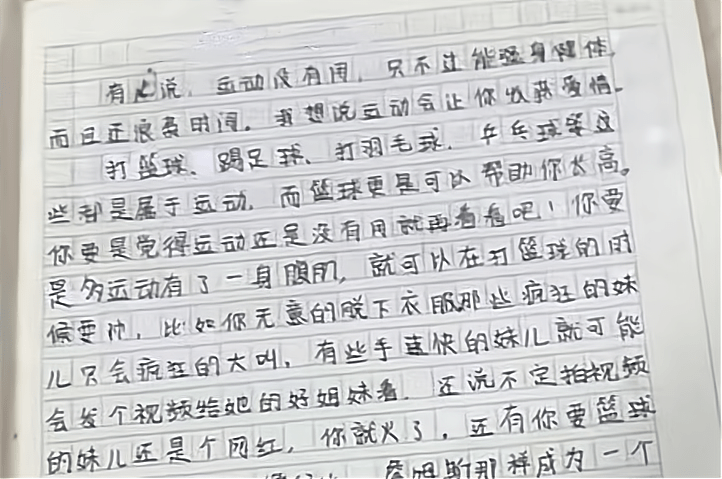 有人说，运动没有用，只不过能强身健体，
而且还浪费时间。我想说运动会让你收获爱情。
打篮球、踢足球、打羽毛球、乒乓球等这
些都是属于运动，而篮球更是可以帮助你长高。
你要是觉得运动还是没有用就再看看吧！你要
是多运动有了一身腹肌，就可以在打篮球的时
候耍帅，比如你无意的脱下衣服那些疯狂的妹
儿只会疯狂的大叫，有些手速快的妹儿就可能
会发个视频给她的好姐妹看，还说不定拍视频
的妹儿还是个网红，你就火了，还有你要篮球
詹姆斯那样成为一个